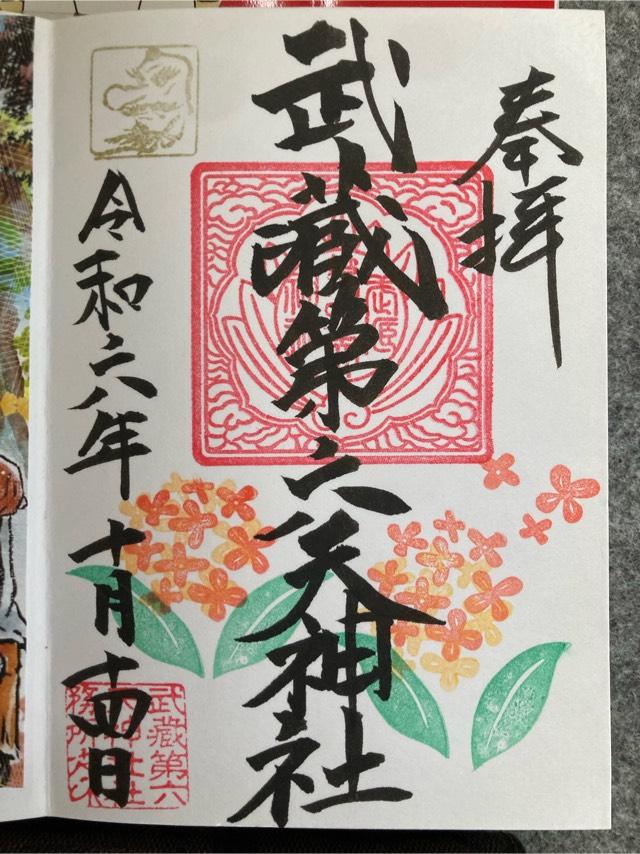 奉拝
武蔵第六天神社
令和六年十月十四日
武蔵第六
天神社社
務所之印